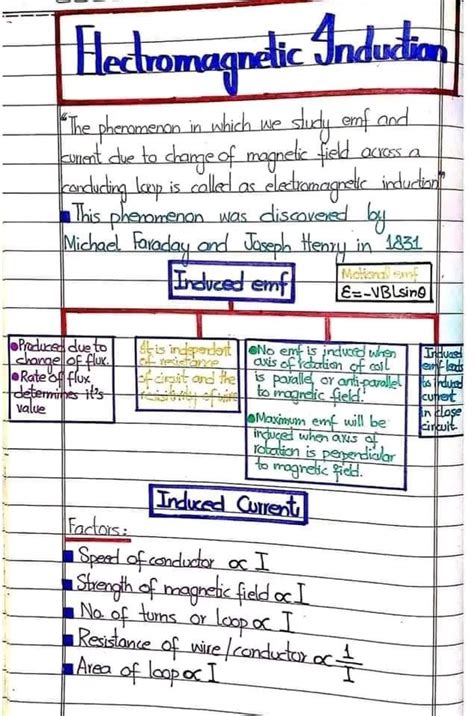 Electromagnetic Induction
"The phenomenon in which we study emf and
current due to change of magnetic field across a
conducting loop is called as electromagnetic induction"
This phenomenon was discovered by
Michael Faraday and Joseph Henry in 1831
Induced emf
Motional emf
Ɛ=-VBLsinθ
Produced due to
change of flux.
Rate of flux
determines it's
value
It is independent
of resistance
of circuit and the
resistivity of wire
No emf is induced when
axis of rotation of coil
is parallel or anti-parallel
to magnetic field.
Maximum emf will be
induced when axis of
rotation is perpendicular
to magnetic field.
Induced
emf leads
to induced
current
in close
circuit.
Induced Current
Factors:
Speed of conductor ∝ I
Strength of magnetic field ∝ I
No. of turns or loop ∝ I
Resistance of wire/conductor ∝ 1/I
Area of loop ∝ I